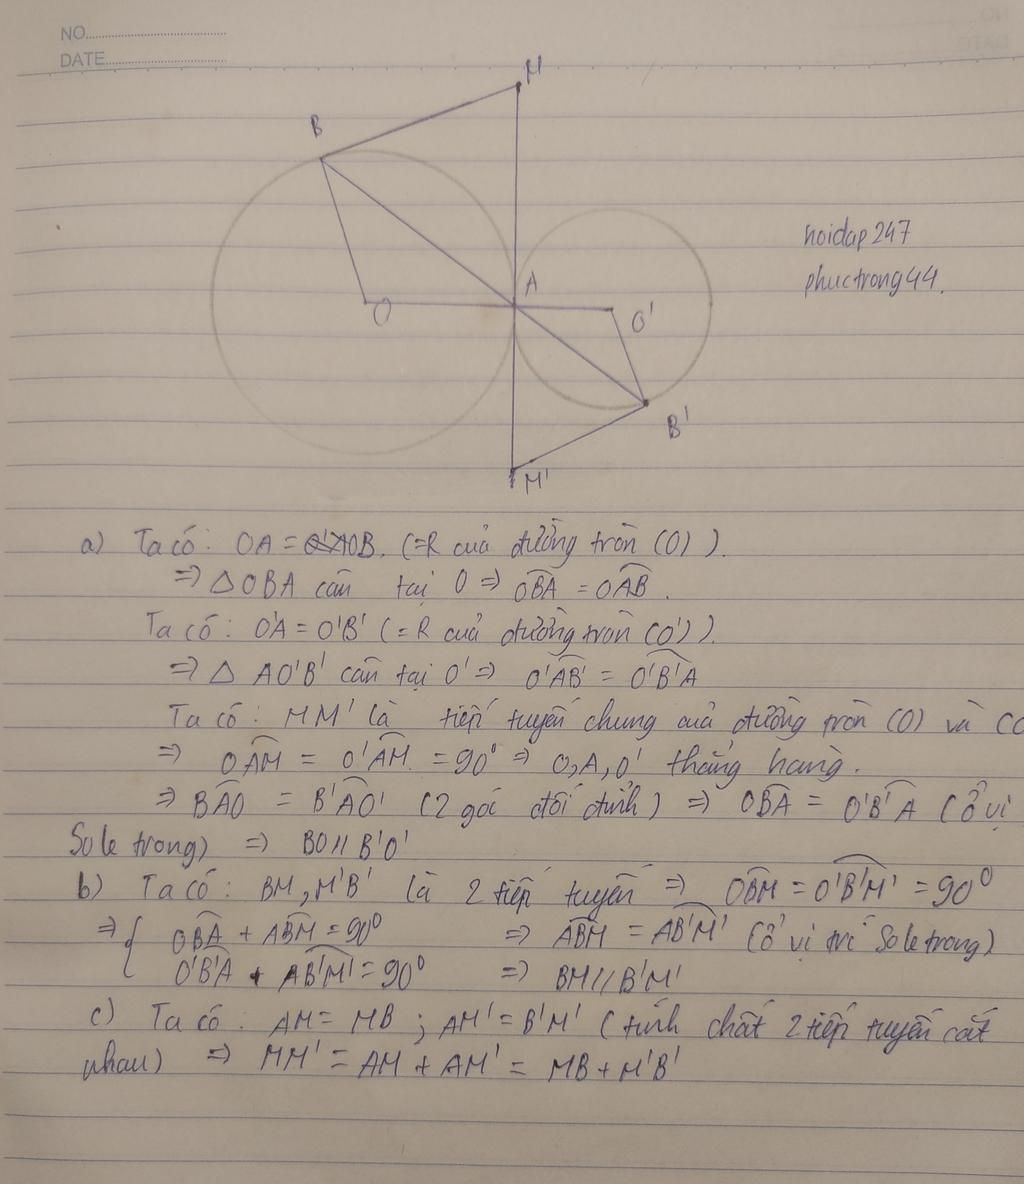 NO.
DATE
M
B
A
O
O'
B'
M'
hoidap247
phuctrong44.
a) Ta có: OA = OB. (=R của đường tròn (O)).
=> △OBA cân tại O => OBA = OAB.
Ta có: O'A = O'B' (=R của đường tròn (O')).
=> △ AO'B' cân tại O' => O'AB' = O'B'A
Ta có: MM' là tiếp tuyến chung của đường tròn (O) và (O
=> OAM = O'AM = 90° => O,A,O' thẳng hàng.
=> BAO = B'AO' (2 góc đối đỉnh) => OBA = O'B'A (ở vị
Sole trong) => BO // B'O'
b) Ta có: BM, M'B' là 2 tiếp tuyến => OBM = O'B'M' = 90°
=> { OBA + ABM = 90° => ABM = AB'M' (ở vị trí Sole trong)
O'B'A + AB'M' = 90° => BM // B'M'
c) Ta có: AM = MB ; AM' = B'M' (tính chất 2 tiếp tuyến cắt
nhau) => MM' = AM + AM' = MB + M'B'